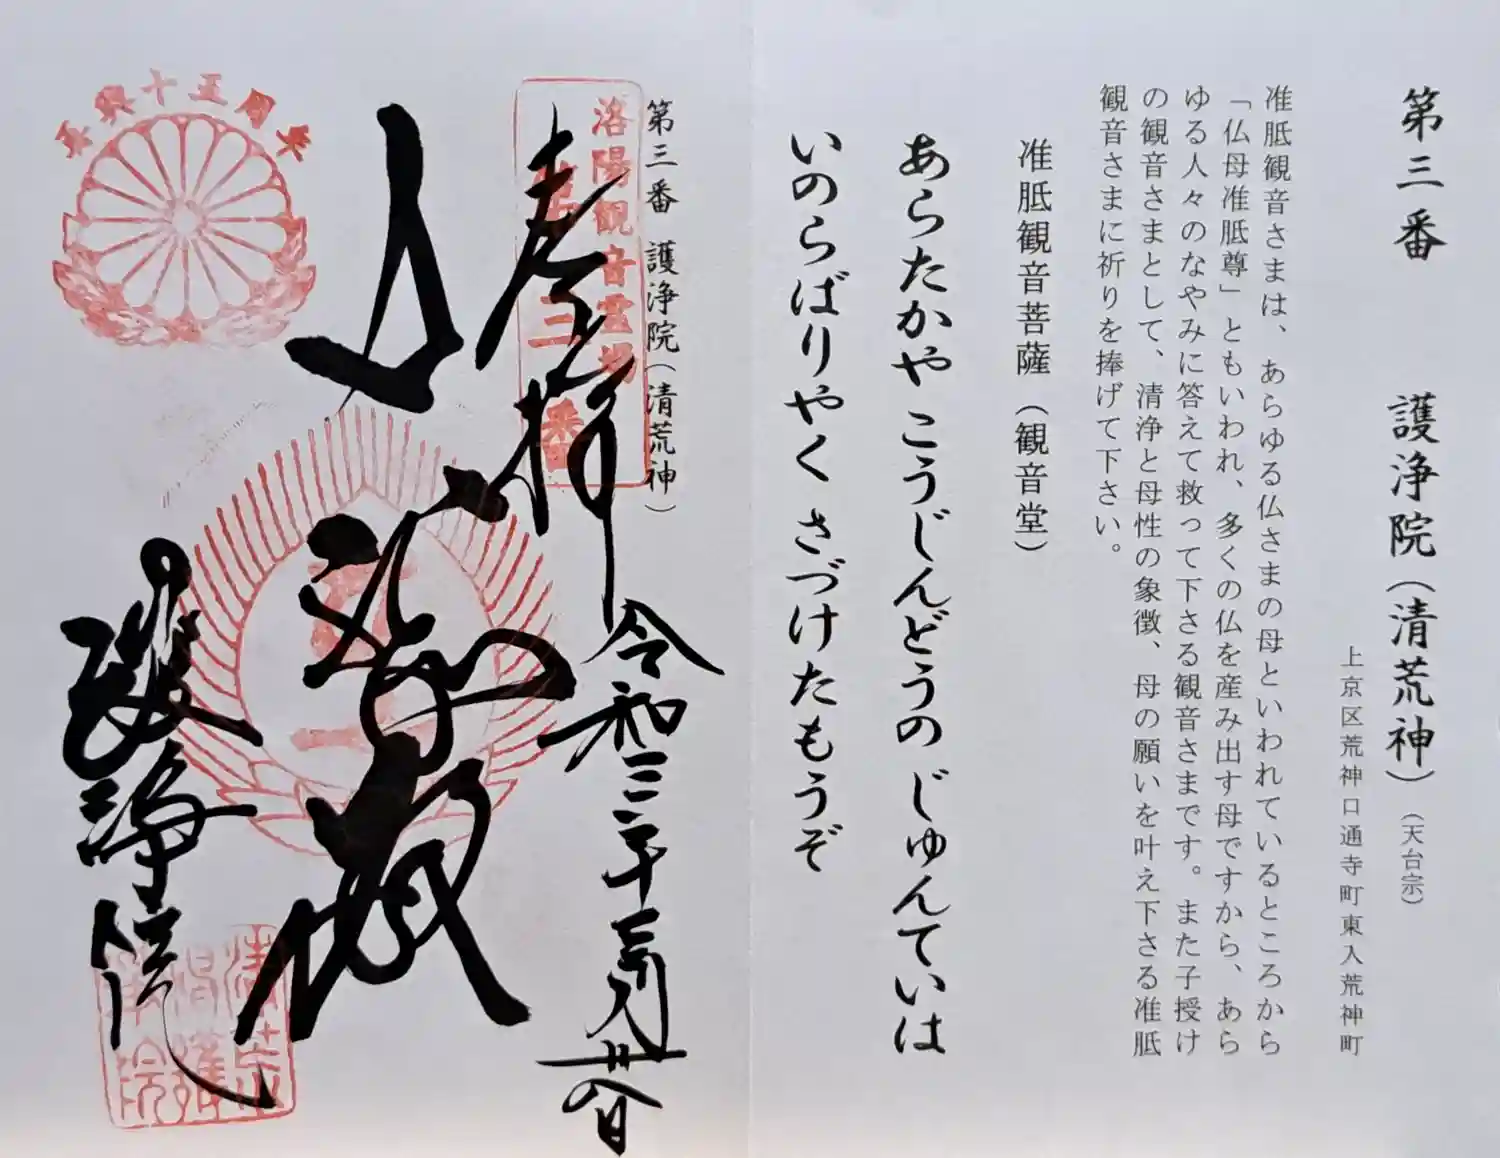 第三番 護浄院(清荒神)(天台宗)
上京区荒神口通寺町東入荒神町
准胝観音さまは、あらゆる仏さまの母といわれているところから
「仏母准胝尊」ともいわれ、多くの仏を産み出す母ですから、あら
ゆる人々のなやみに答えて救って下さる観音さまです。また子授け
の観音さまとして、清浄と母性の象徴、母の願いを叶え下さる准胝
観音さまに祈りを捧げて下さい。
准胝観音菩薩(観音堂)
あらたかや こうじんどうの じゅんていは
いのらばりやく さづけたもうぞ
第三番 護浄院(清荒神)
洛陽観音霊場
第三番
奉拝
令和三年三月廿八日
護浄院